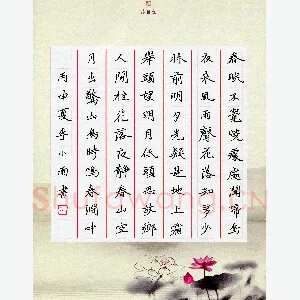 春眠不覺曉處處聞啼鳥
夜来風雨聲花落知多少
牀前明月光疑是地上霜
舉頭望明月低頭思故鄉
人閒桂花落夜靜春山空
月出驚山鳥時鳴春澗中
丙申夏季小雨書